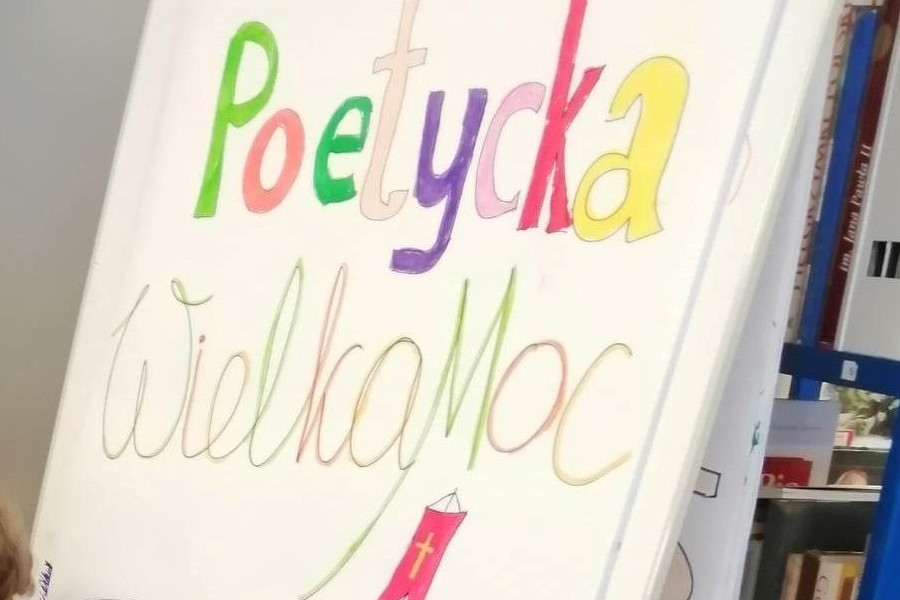 Poetycka
WielkaMoc
im. Jana Pawła II